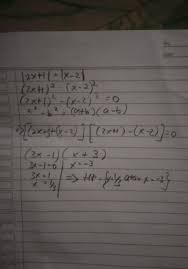 |2x+1| = |x-2|
(2x+1)² = (x-2)²
(2x+1)² - (x-2)² = 0
a² - b² = (a+b)(a-b)
[(2x+1)+(x-2)] [(2x+1)-(x-2)] = 0
(3x-1) (x+3)
3x-1=0 x=-3
3x=1
x=1/3 => HP = {x=1/3 atau x=-3}